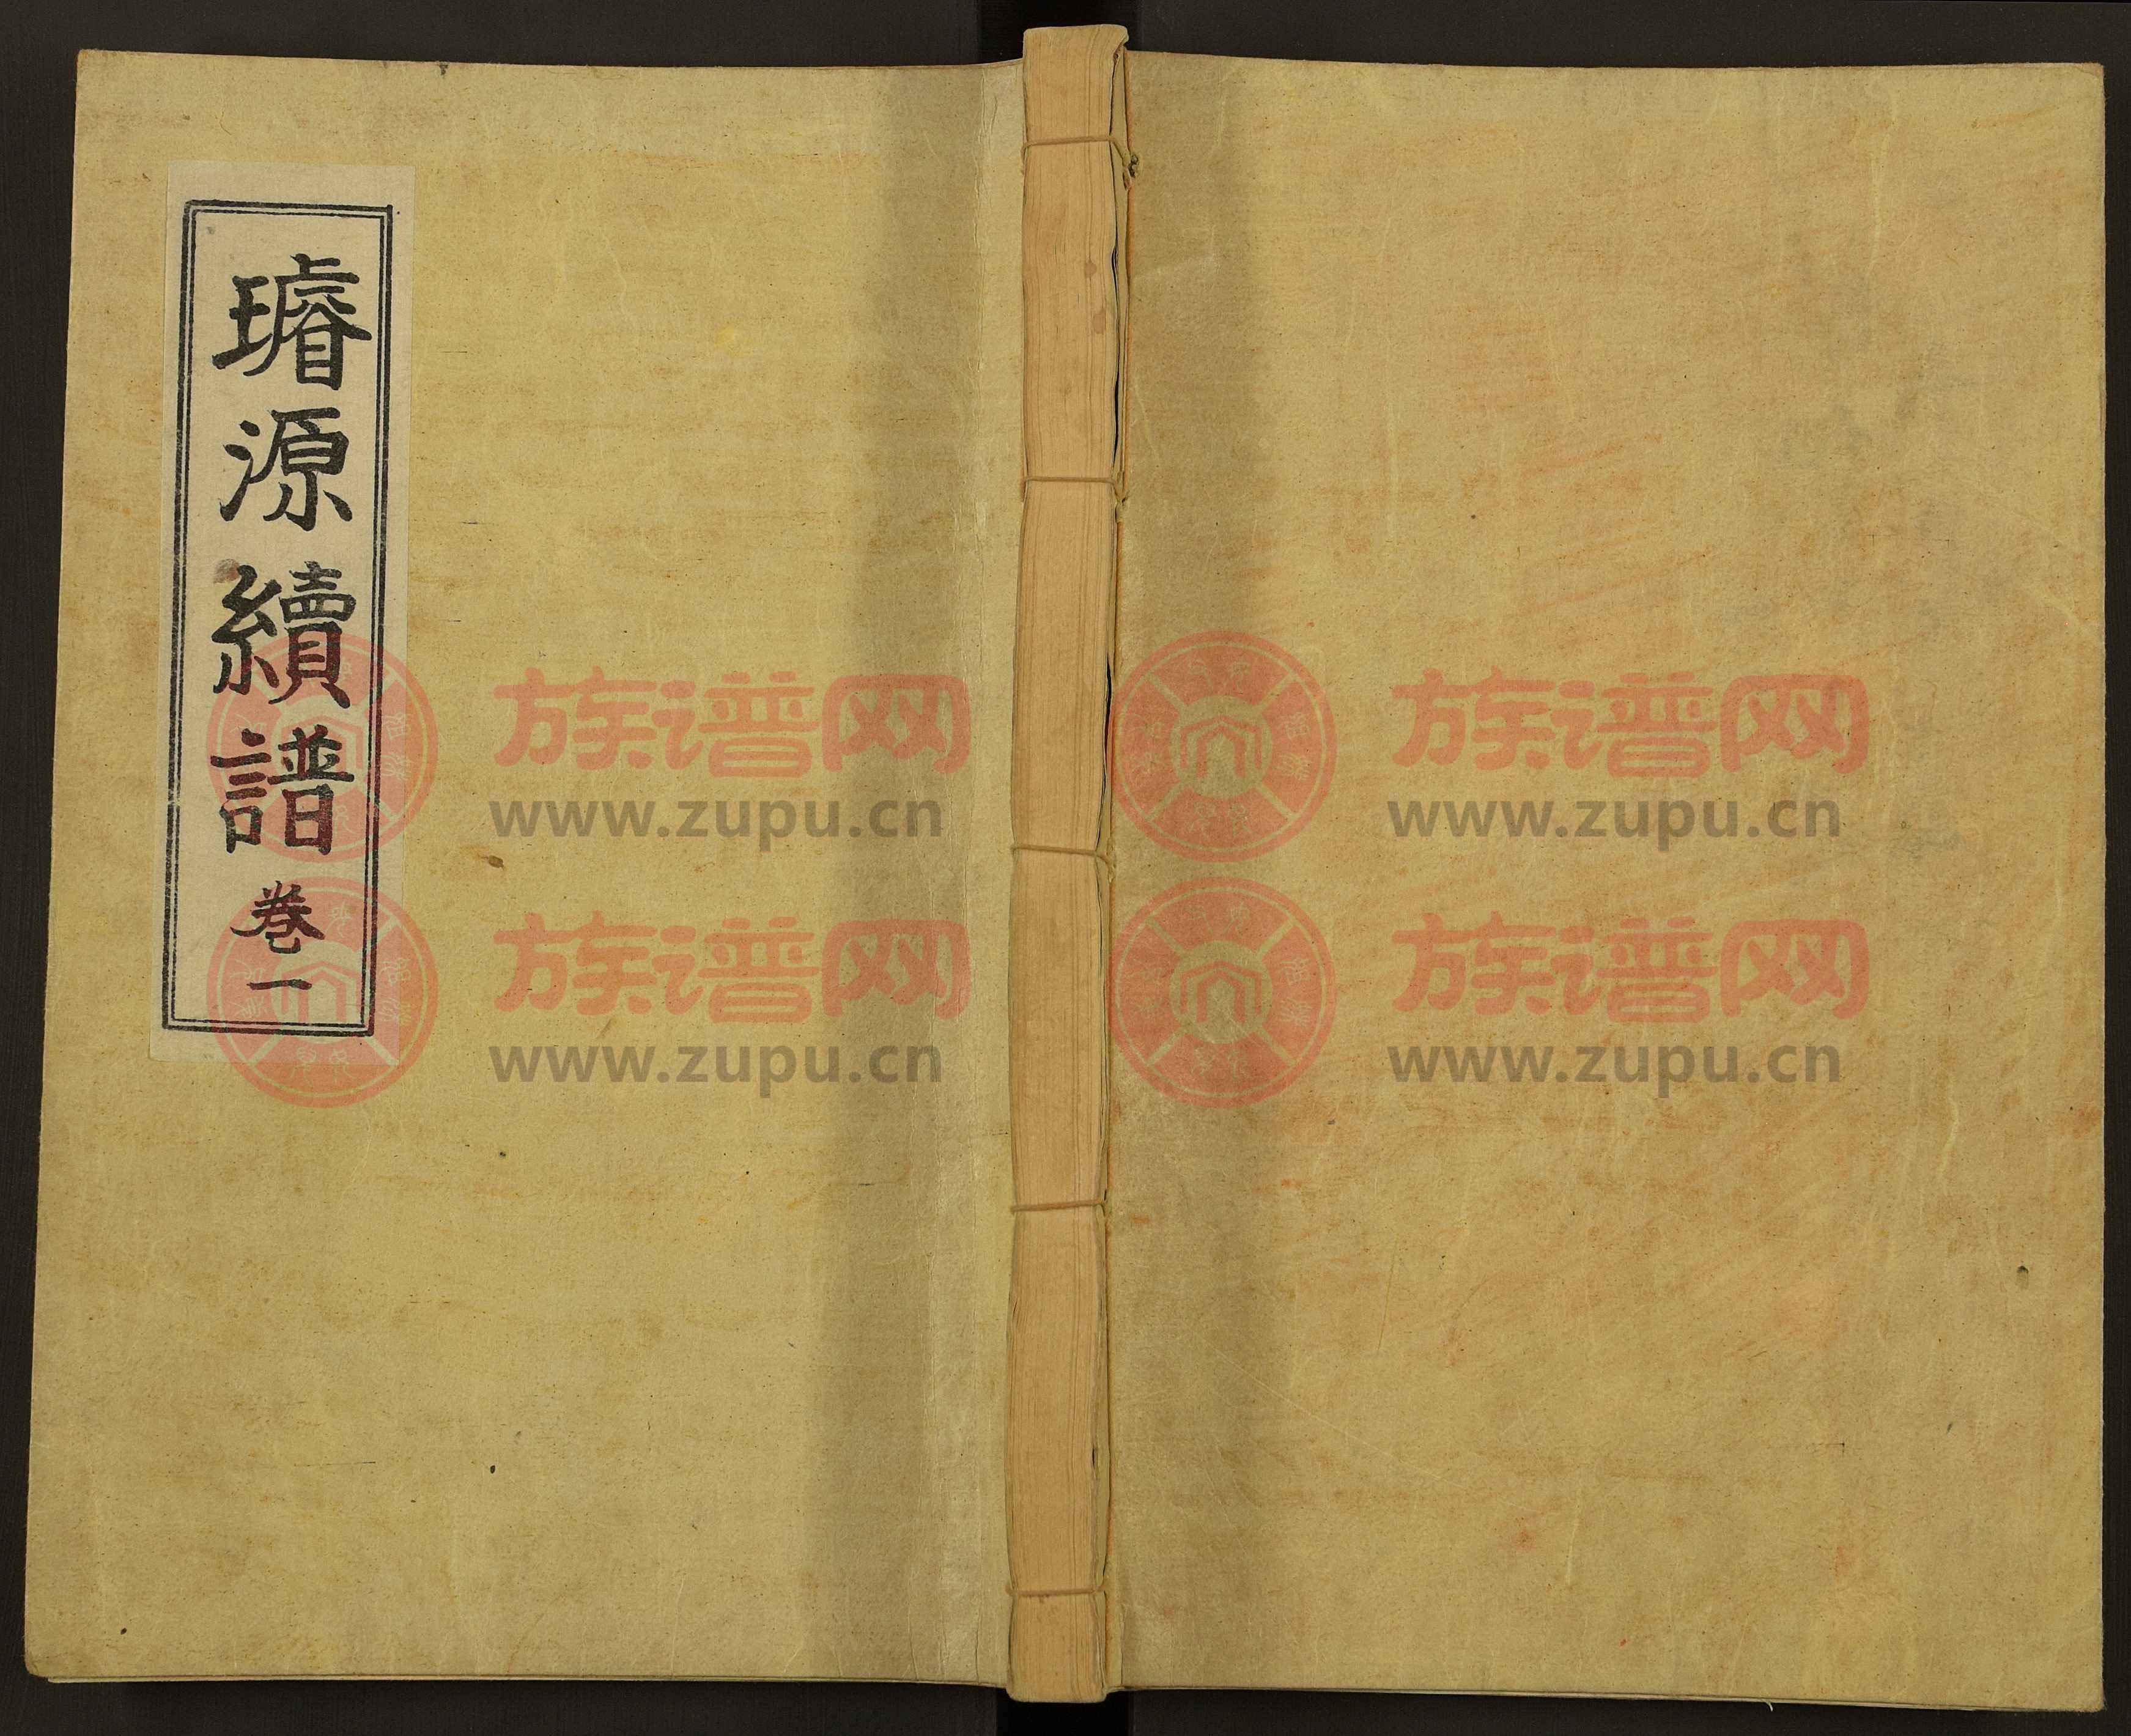 璿源續譜 卷一
族谱网
www.zupu.cn
族谱网
www.zupu.cn
族谱网
www.zupu.cn
族谱网
www.zupu.cn